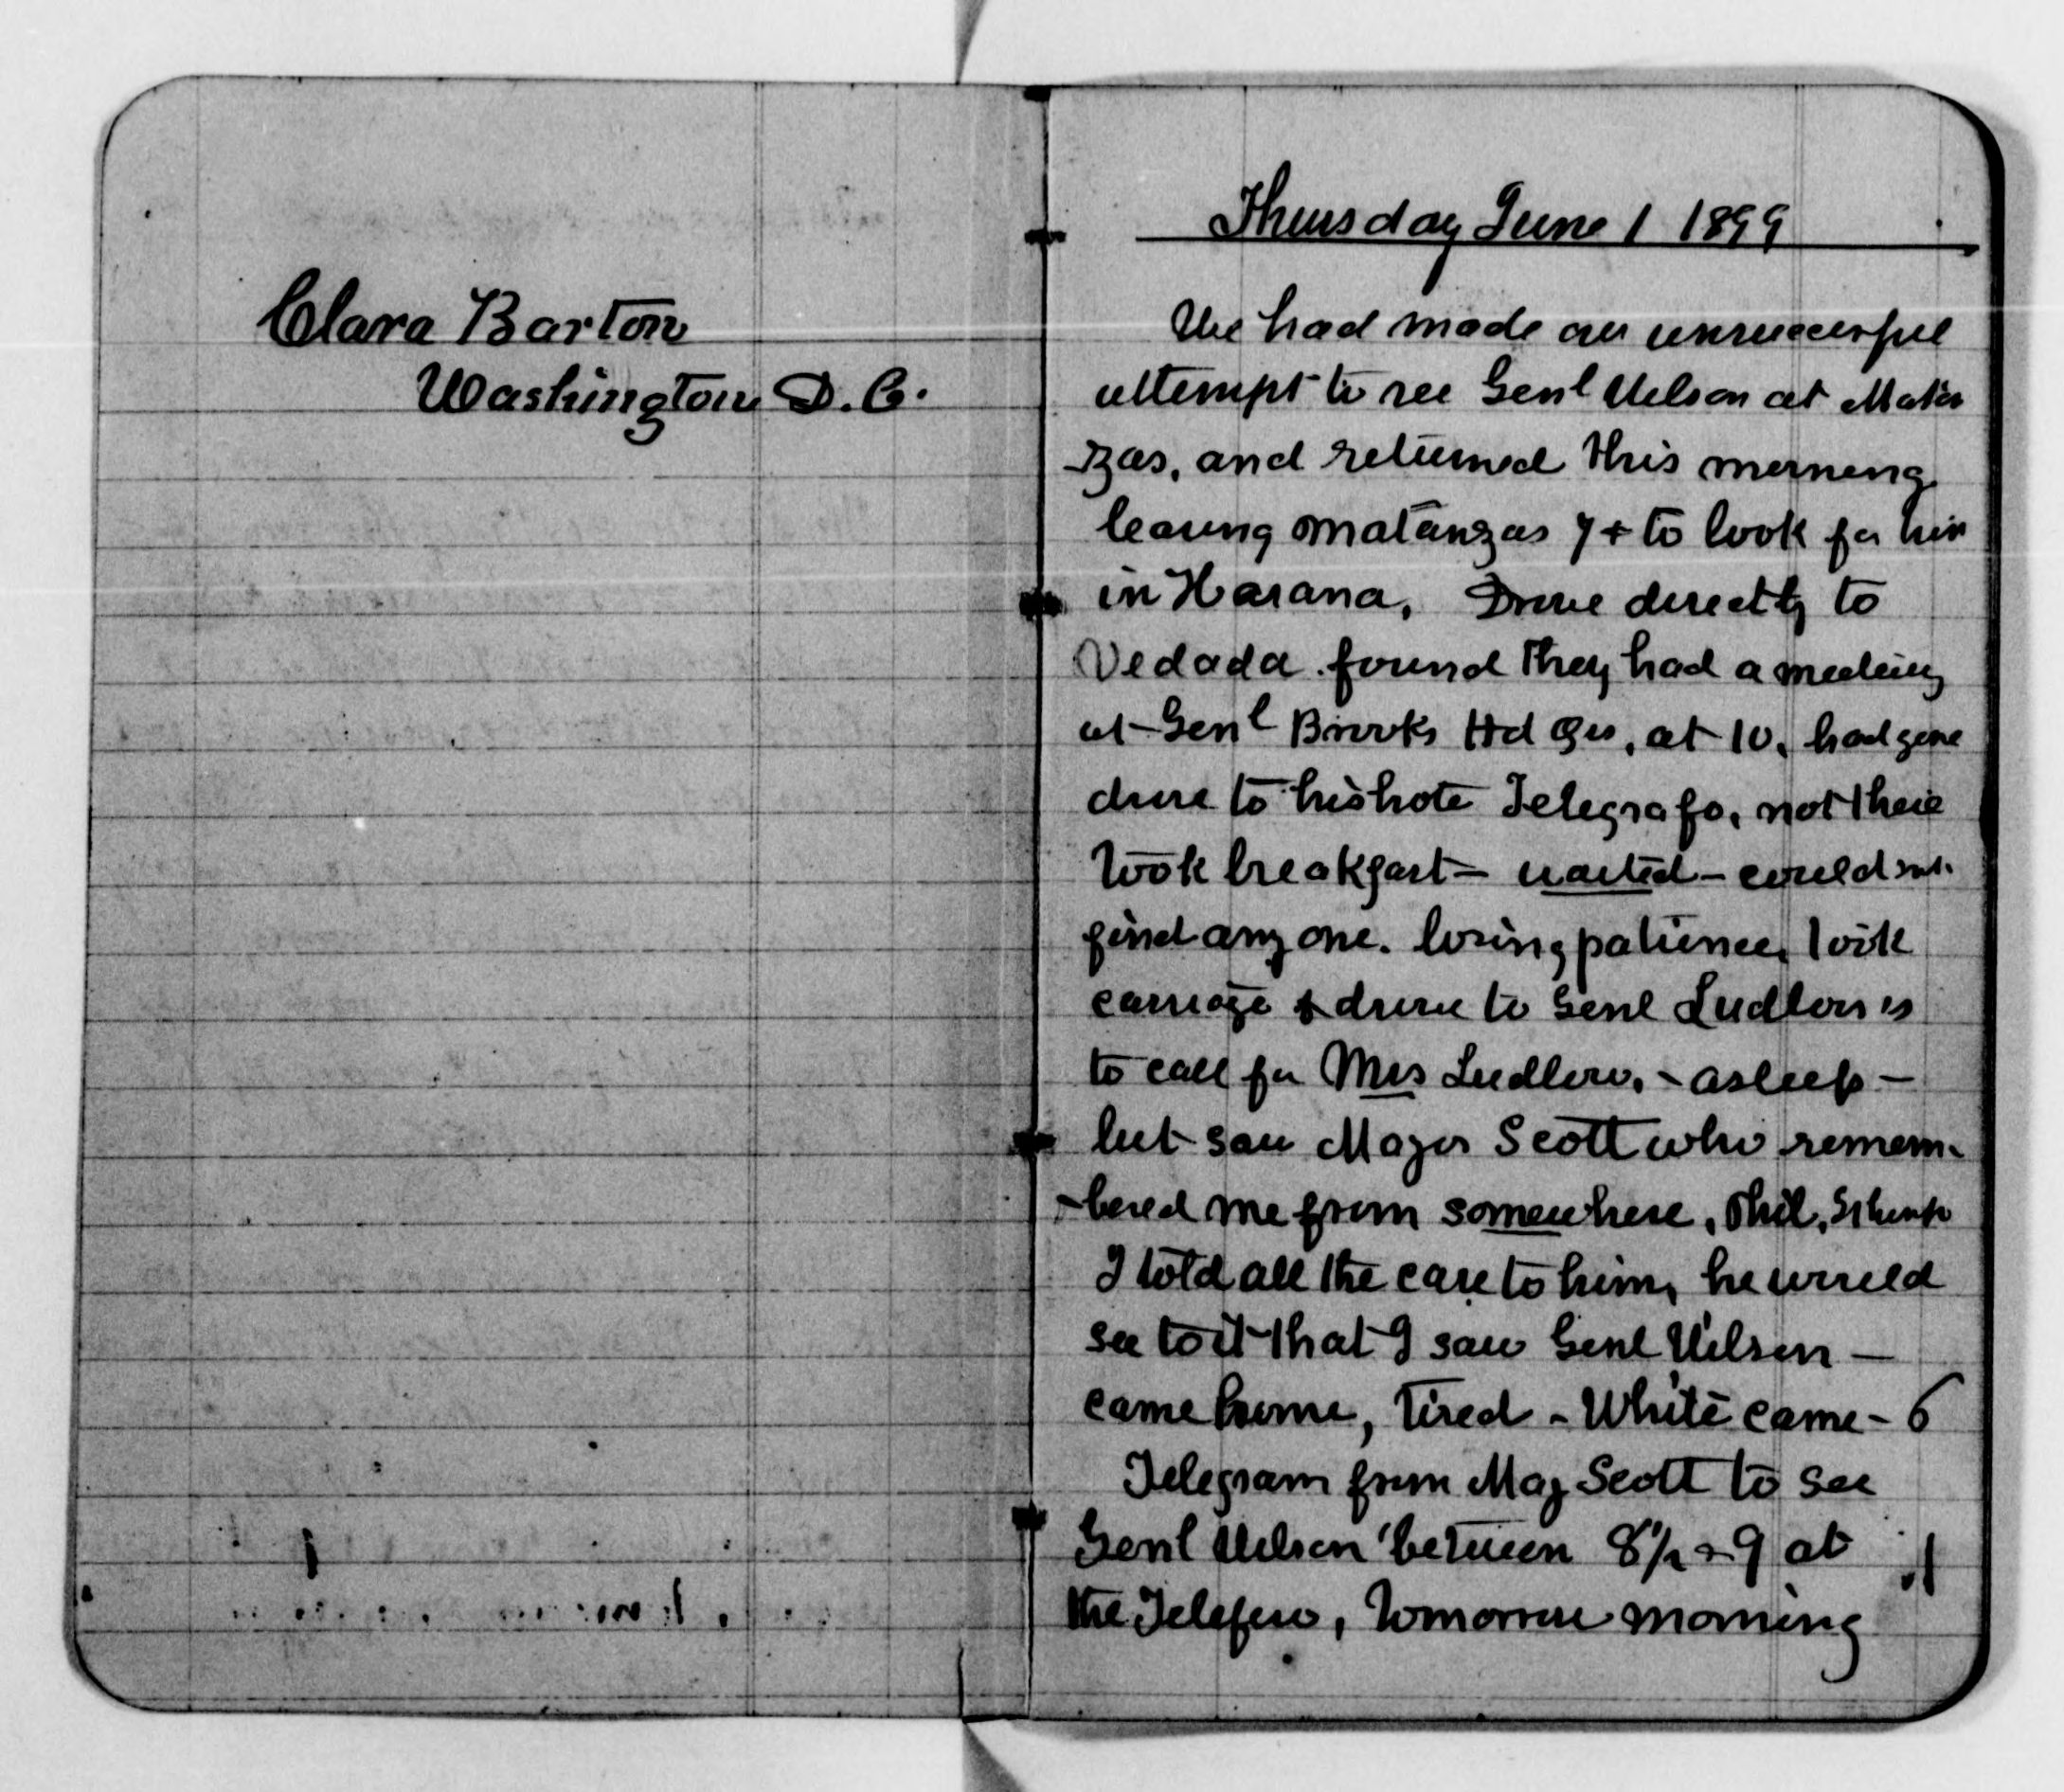 Clara Barton
Washington D.C.
Thursday June 1 1899
We had made an unsuccesful
attempt to see Genl Wilson at Matan
-zas, and returned this morning
leaving Matanzas 7+ to look for him
in Havana, Drove directly to
Vedada found they had a meeting
at Genl Brooks Hd Qrs, at 10, had gone
drove to his hote Telegrafo, not there
took breakfast - waited - could not
find any one. losing patience, took
carriage & drove to Genl Ludlow's
to call for Mrs Ludlow, - asleep -
but saw Major Scott who remem-
-bered me from somewhere, Phil,
I told all the case to him, he would
see to it that I saw Genl Wilson -
came home, tired - White came - 6
Telegram from Maj Scott to see
Genl Wilson between 8½ & 9 at
the, tomorrow morning